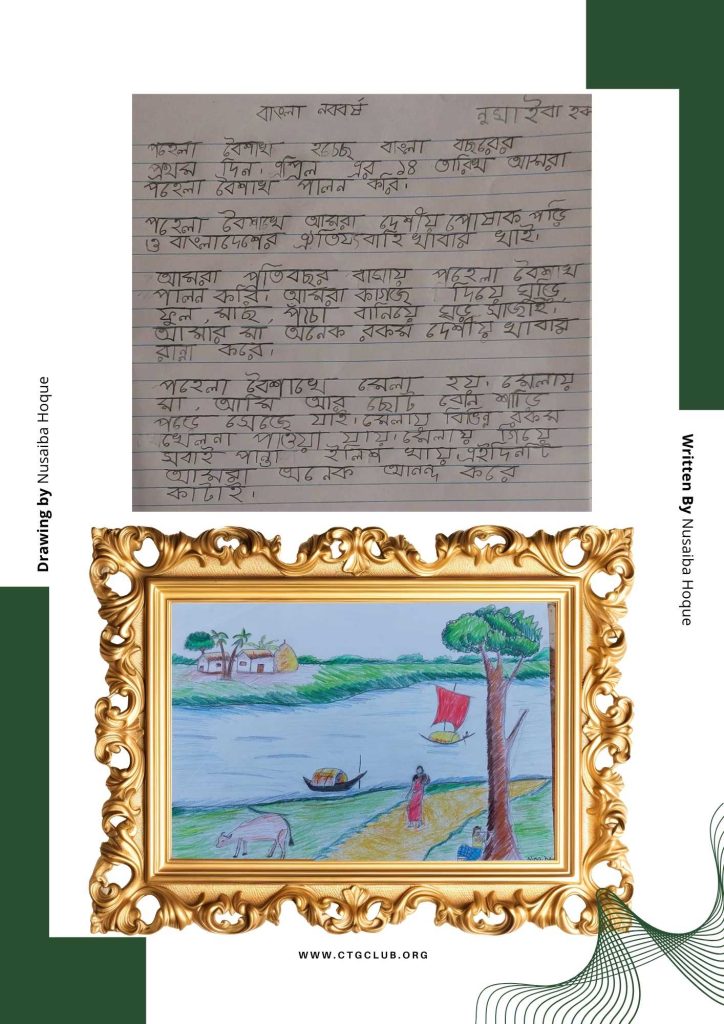 বাংলা নববর্ষ
নুসাইবা হক
পহেলা বৈশাখ হচ্ছে বাংলা বছরের
প্রথম দিন। এপ্রিল এর ১৪ তারিখ আমরা
পহেলা বৈশাখ পালন করি।
পহেলা বৈশাখে আমরা দেশীয় পোষাক পড়ি
ও বাংলাদেশের ঐতিয্যবাহি খাবার খাই।
আমরা প্রতিবছর বাসায় পহেলা বৈশাখ
পালন করি। আমরা কাগজ দিয়ে ঘুড়ি,
ফুল, মাছ, পাঁচা বানিয়ে ঘড় সাজাই।
আমার মা অনেক রকম দেশীয় খাবার
রান্না করে।
পহেলা বৈশাখে মেলা হয়। মেলায়
মা, আমি আর ছোট বোন শাড়ি
পড়ে সেজে যাই। মেলায় বিভিন্ন রকম
খেলনা পাওয়া যায়। মেলায় গিয়ে
সবাই পান্তা ইলিশ খায়। এইদিনটি
আমরা অনেক আনন্দ করে
কাটাই।
Drawing by Nusaiba Hoque
Written By Nusaiba Hoque
WWW.CTGCLUB.ORG